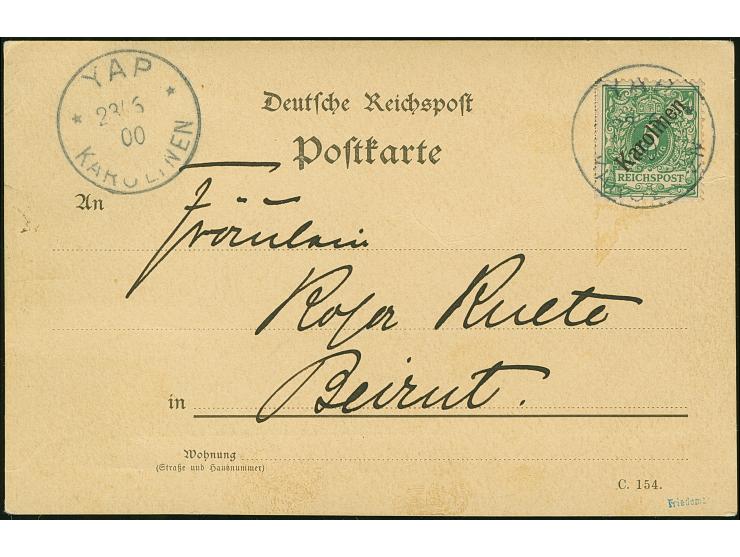 YAP
23/5
00
KAROLINEN
Deutsche Reichspost
Postkarte
Karolinen
REICHSPOST
An
Fräulein
Rosa Ruete
in Beirut.
Wohnung
(Straße und Hausnummer)
C. 154.